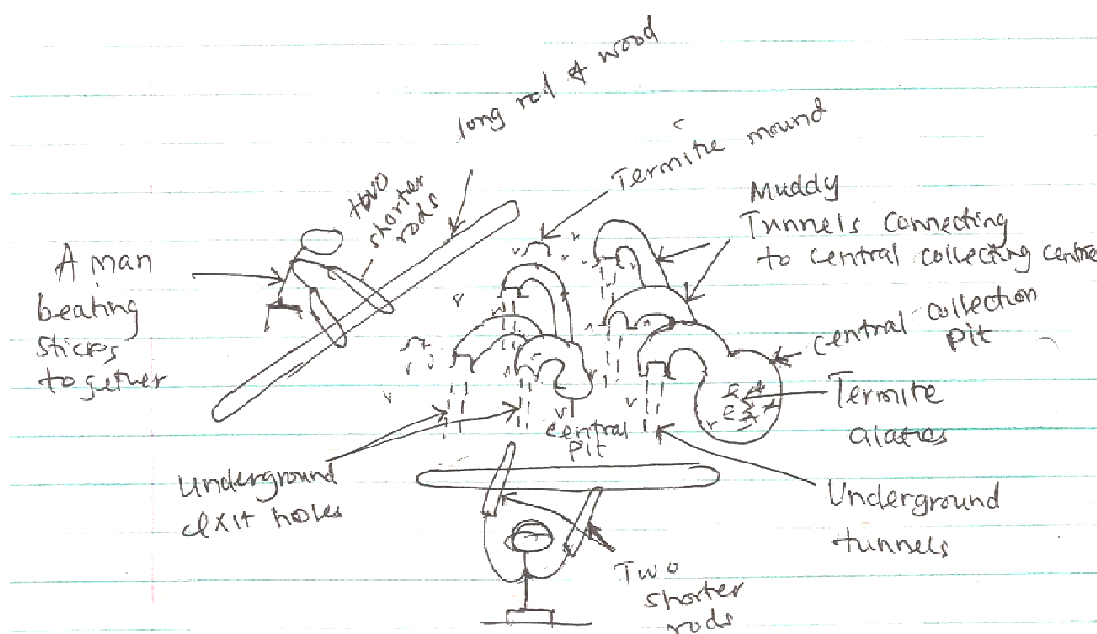 long rod of wood
Termite mound
two
shorter
rods
Muddy
Tunnels connecting
to central collecting centre
A man
beating
sticks
together
central collection
pit
Termite
alates
central
pit
Underground
exit holes
Underground
tunnels
Two
shorter
rods